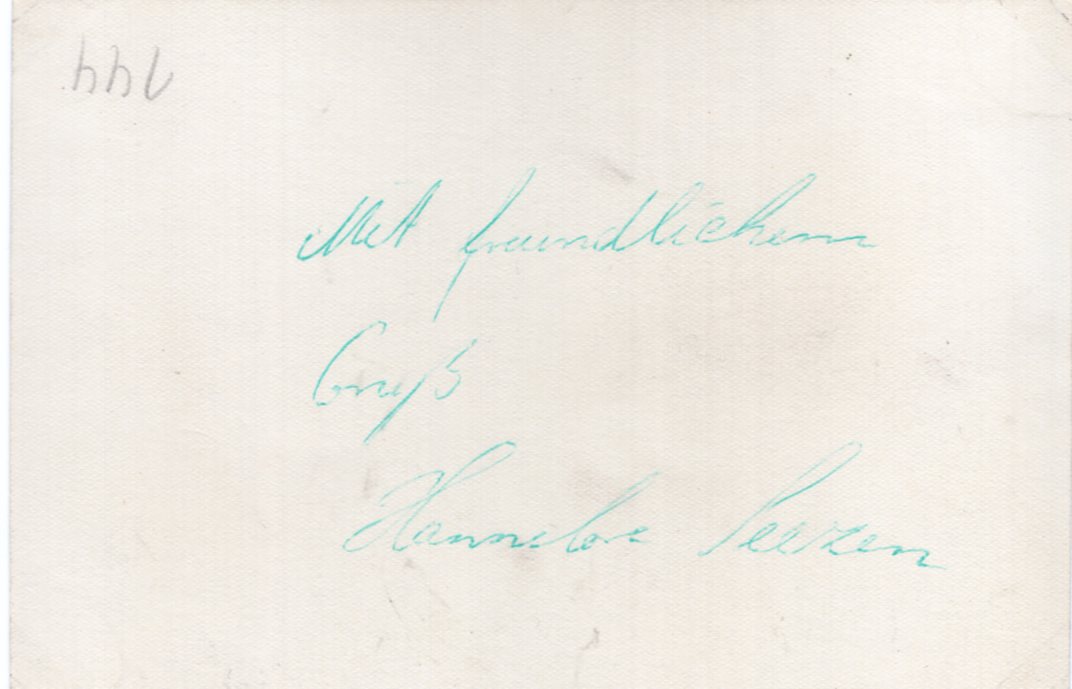 144
Mit freundlichem
Gruß
Hannelore